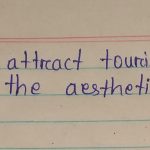 attract touri
the aestheti